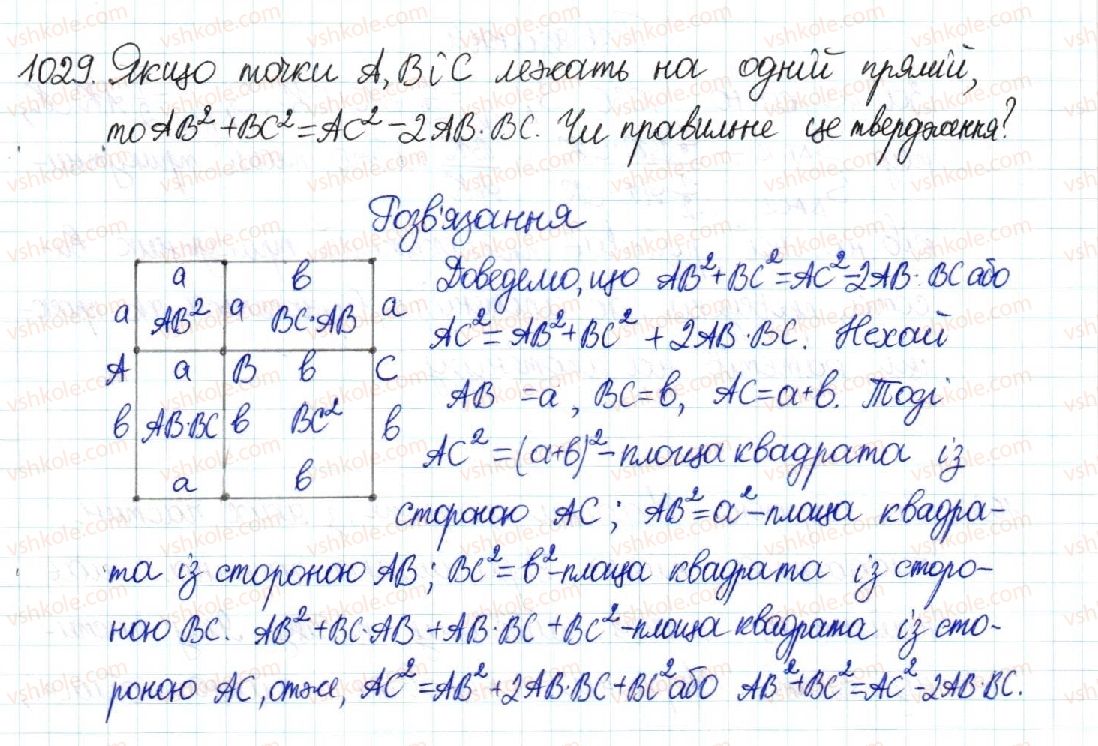 1029. Якщо точки A, B і C лежать на одній прямій,
то AB² + BC² = AC² - 2AB·BC. Чи правильне це твердження?
Розв'язання
a в
a AB² a BC·AB a
A a B в C
в AB·BC в BC² в
a в
Доведемо, що AB² + BC² = AC² - 2AB·BC або
AC² = AB² + BC² + 2AB·BC. Нехай
AB = a, BC = в, AC = a+в. Тоді
AC² = (a+в)² - площа квадрата із
стороною AC; AB² = a² - площа квадра-
та із стороною AB; BC² = в² - площа квадрата із сторо-
ною BC. AB² + BC·AB + AB·BC + BC² - площа квадрата із сто-
роною AC, отже, AC² = AB² + 2AB·BC + BC² або AB² + BC² = AC² - 2AB·BC.
vshkole.com